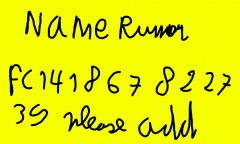 Name Rumor
FC141867 8227
39 please add